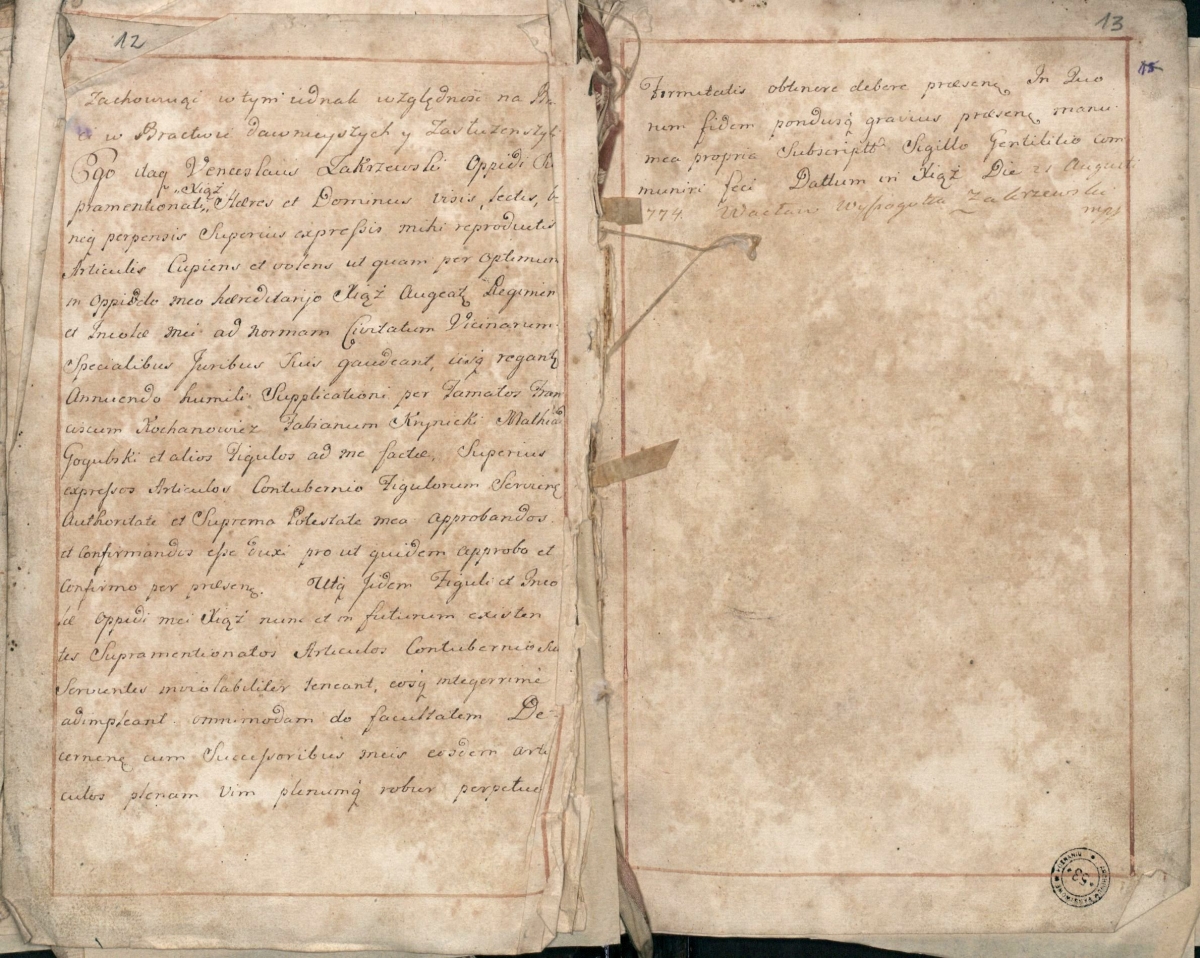 12
Zachowując w tym iednak wzgłędność na Br
w Bractwie dawnieyszych y Zasłuzenszych
Ego itaq Venceslaus Zakrzewski Oppidi Su
Xiąż
pramentionati, Hæres et Dominus visis, lectis, b
neq perpensis Superius expressis mihi reproductis
Articulis Cupiens et volens ut quam per optimum
in Oppido meo hæreditarijo Xiąż Augeatz Regimen
et Incolæ mei ad normam Civitatum Vicinarum
Specialibus Juribus Suis gaudeant, iisq regantz
Annuendo humili Supplicationi per Famatos Fran
ciscum Kochanowicz Fabianum Krynicki Mathia
Gogulski et alios Figulos ad me factæ, Superius
expressos Articulos Contubernio Figulorum Servienę
Authoritate et Suprema Potestate mea approbandos
et Confirmandos esse duxi pro ut quidem approbo et
Confirmo per præsenę. Utq Jidem Figuli et Inco
læ Oppidi mei Xiąż nunc et in futurum existen
tes Supramentionatos Articulos Contubernio Suo
Servientes inviolabiliter teneant, eosq integerrime
adimpleant omnimodam do facultatem De-
cernenę cum Successoribus meis eosdem arti
culos plenam Vim plenumq robur perpetuo
13
15
Firmitatis obtinere debere præsenę In Quo
rum fidem pondusq gravius præsenę manu
mea propria Subscriptt Sigillo Gentilitio com
muniri feci Dattum in Xiąż Die 21 Augusti
774 Wacław Wyssogotta Zakrzewski
mpp
53